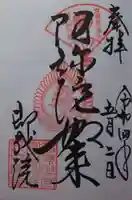 奉拝
令和四年
五月二日
阿弥陀如来
即成院